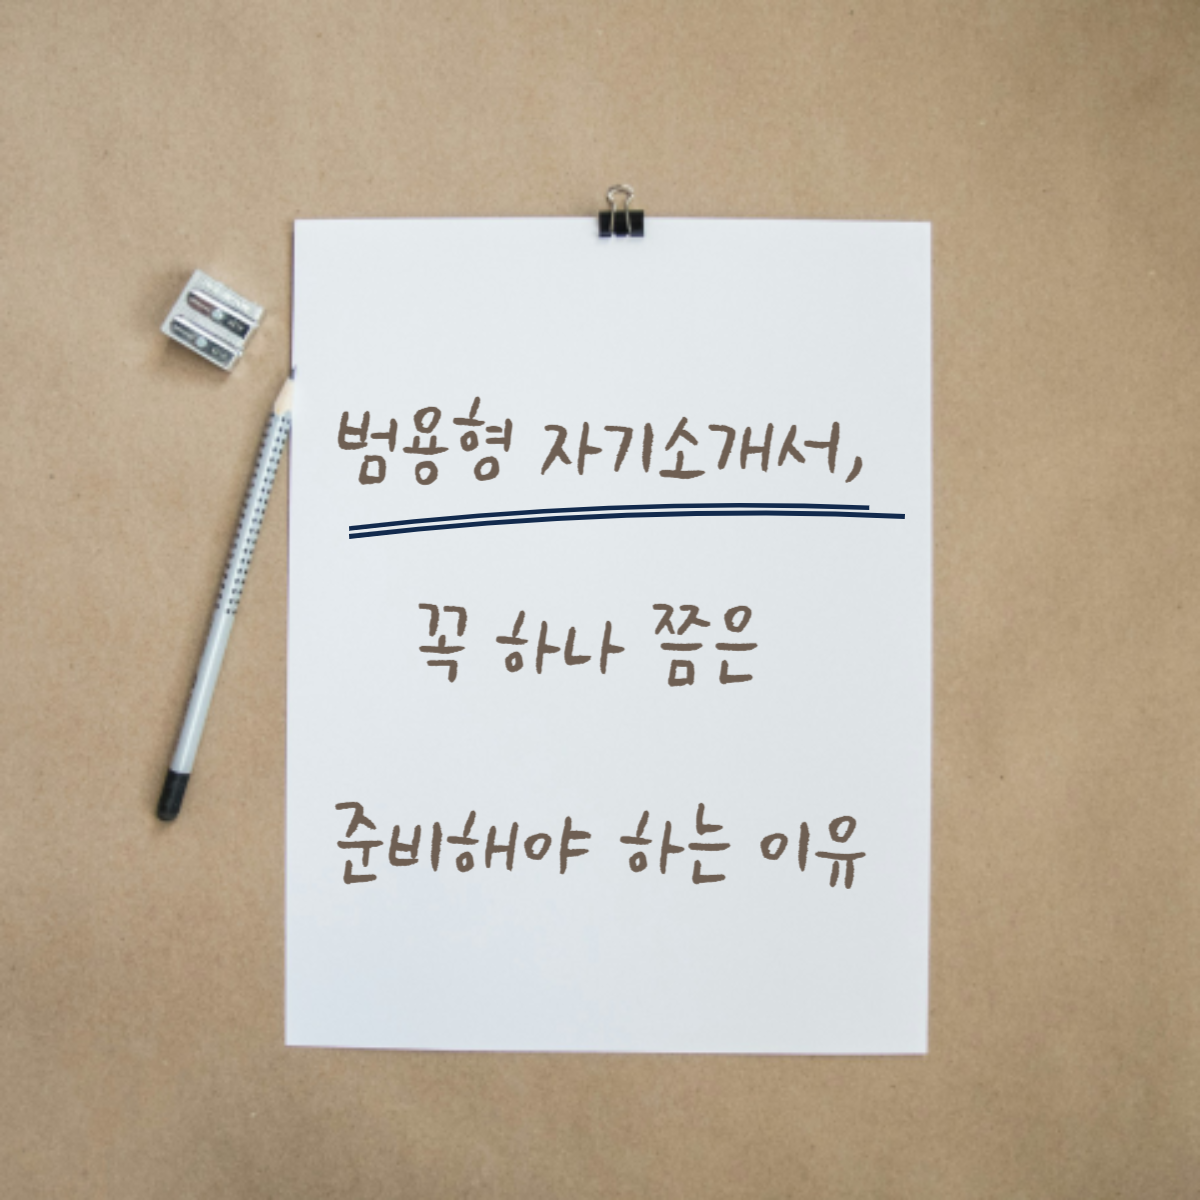 범용형 자기소개서,
꼭 하나 쯤은
준비해야 하는 이유